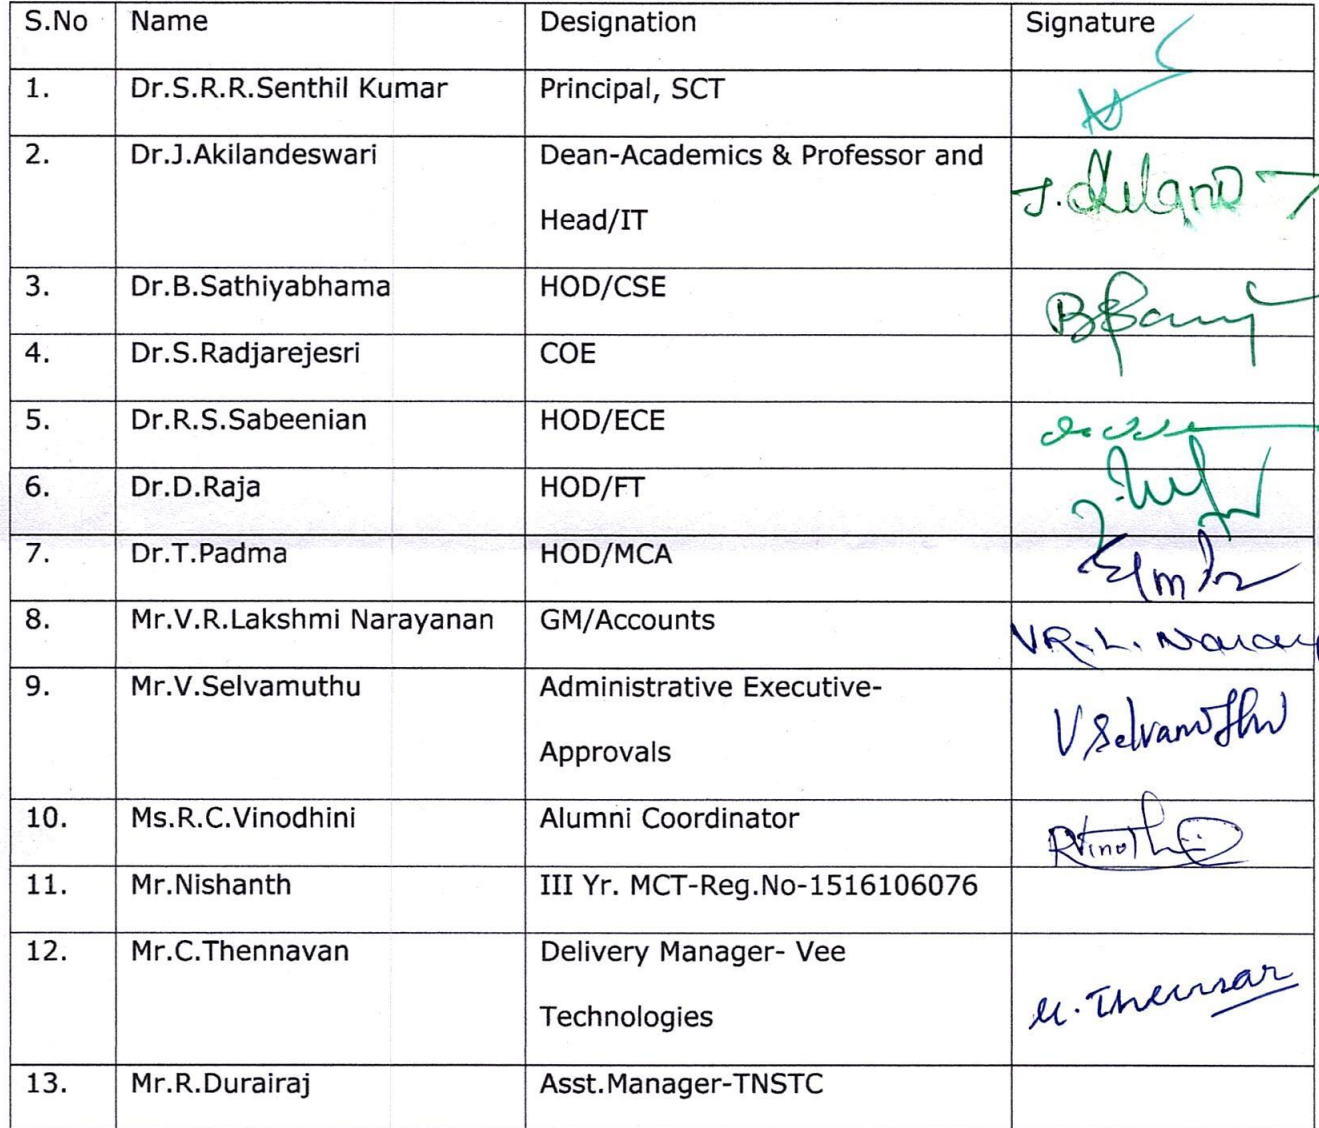 S.No Name Designation Signature
1. Dr.S.R.R.Senthil Kumar Principal, SCT
2. Dr.J.Akilandeswari Dean-Academics & Professor and
Head/IT
3. Dr.B.Sathiyabhama HOD/CSE
4. Dr.S.Radjarejesri COE
5. Dr.R.S.Sabeenian HOD/ECE
6. Dr.D.Raja HOD/FT
7. Dr.T.Padma HOD/MCA
8. Mr.V.R.Lakshmi Narayanan GM/Accounts VR.L.
9. Mr.V.Selvamuthu Administrative Executive-
Approvals
V Selvamuthu
10. Ms.R.C.Vinodhini Alumni Coordinator
11. Mr.Nishanth III Yr. MCT-Reg.No-1516106076
12. Mr.C.Thennavan Delivery Manager- Vee
Technologies
13. Mr.R.Durairaj Asst.Manager-TNSTC